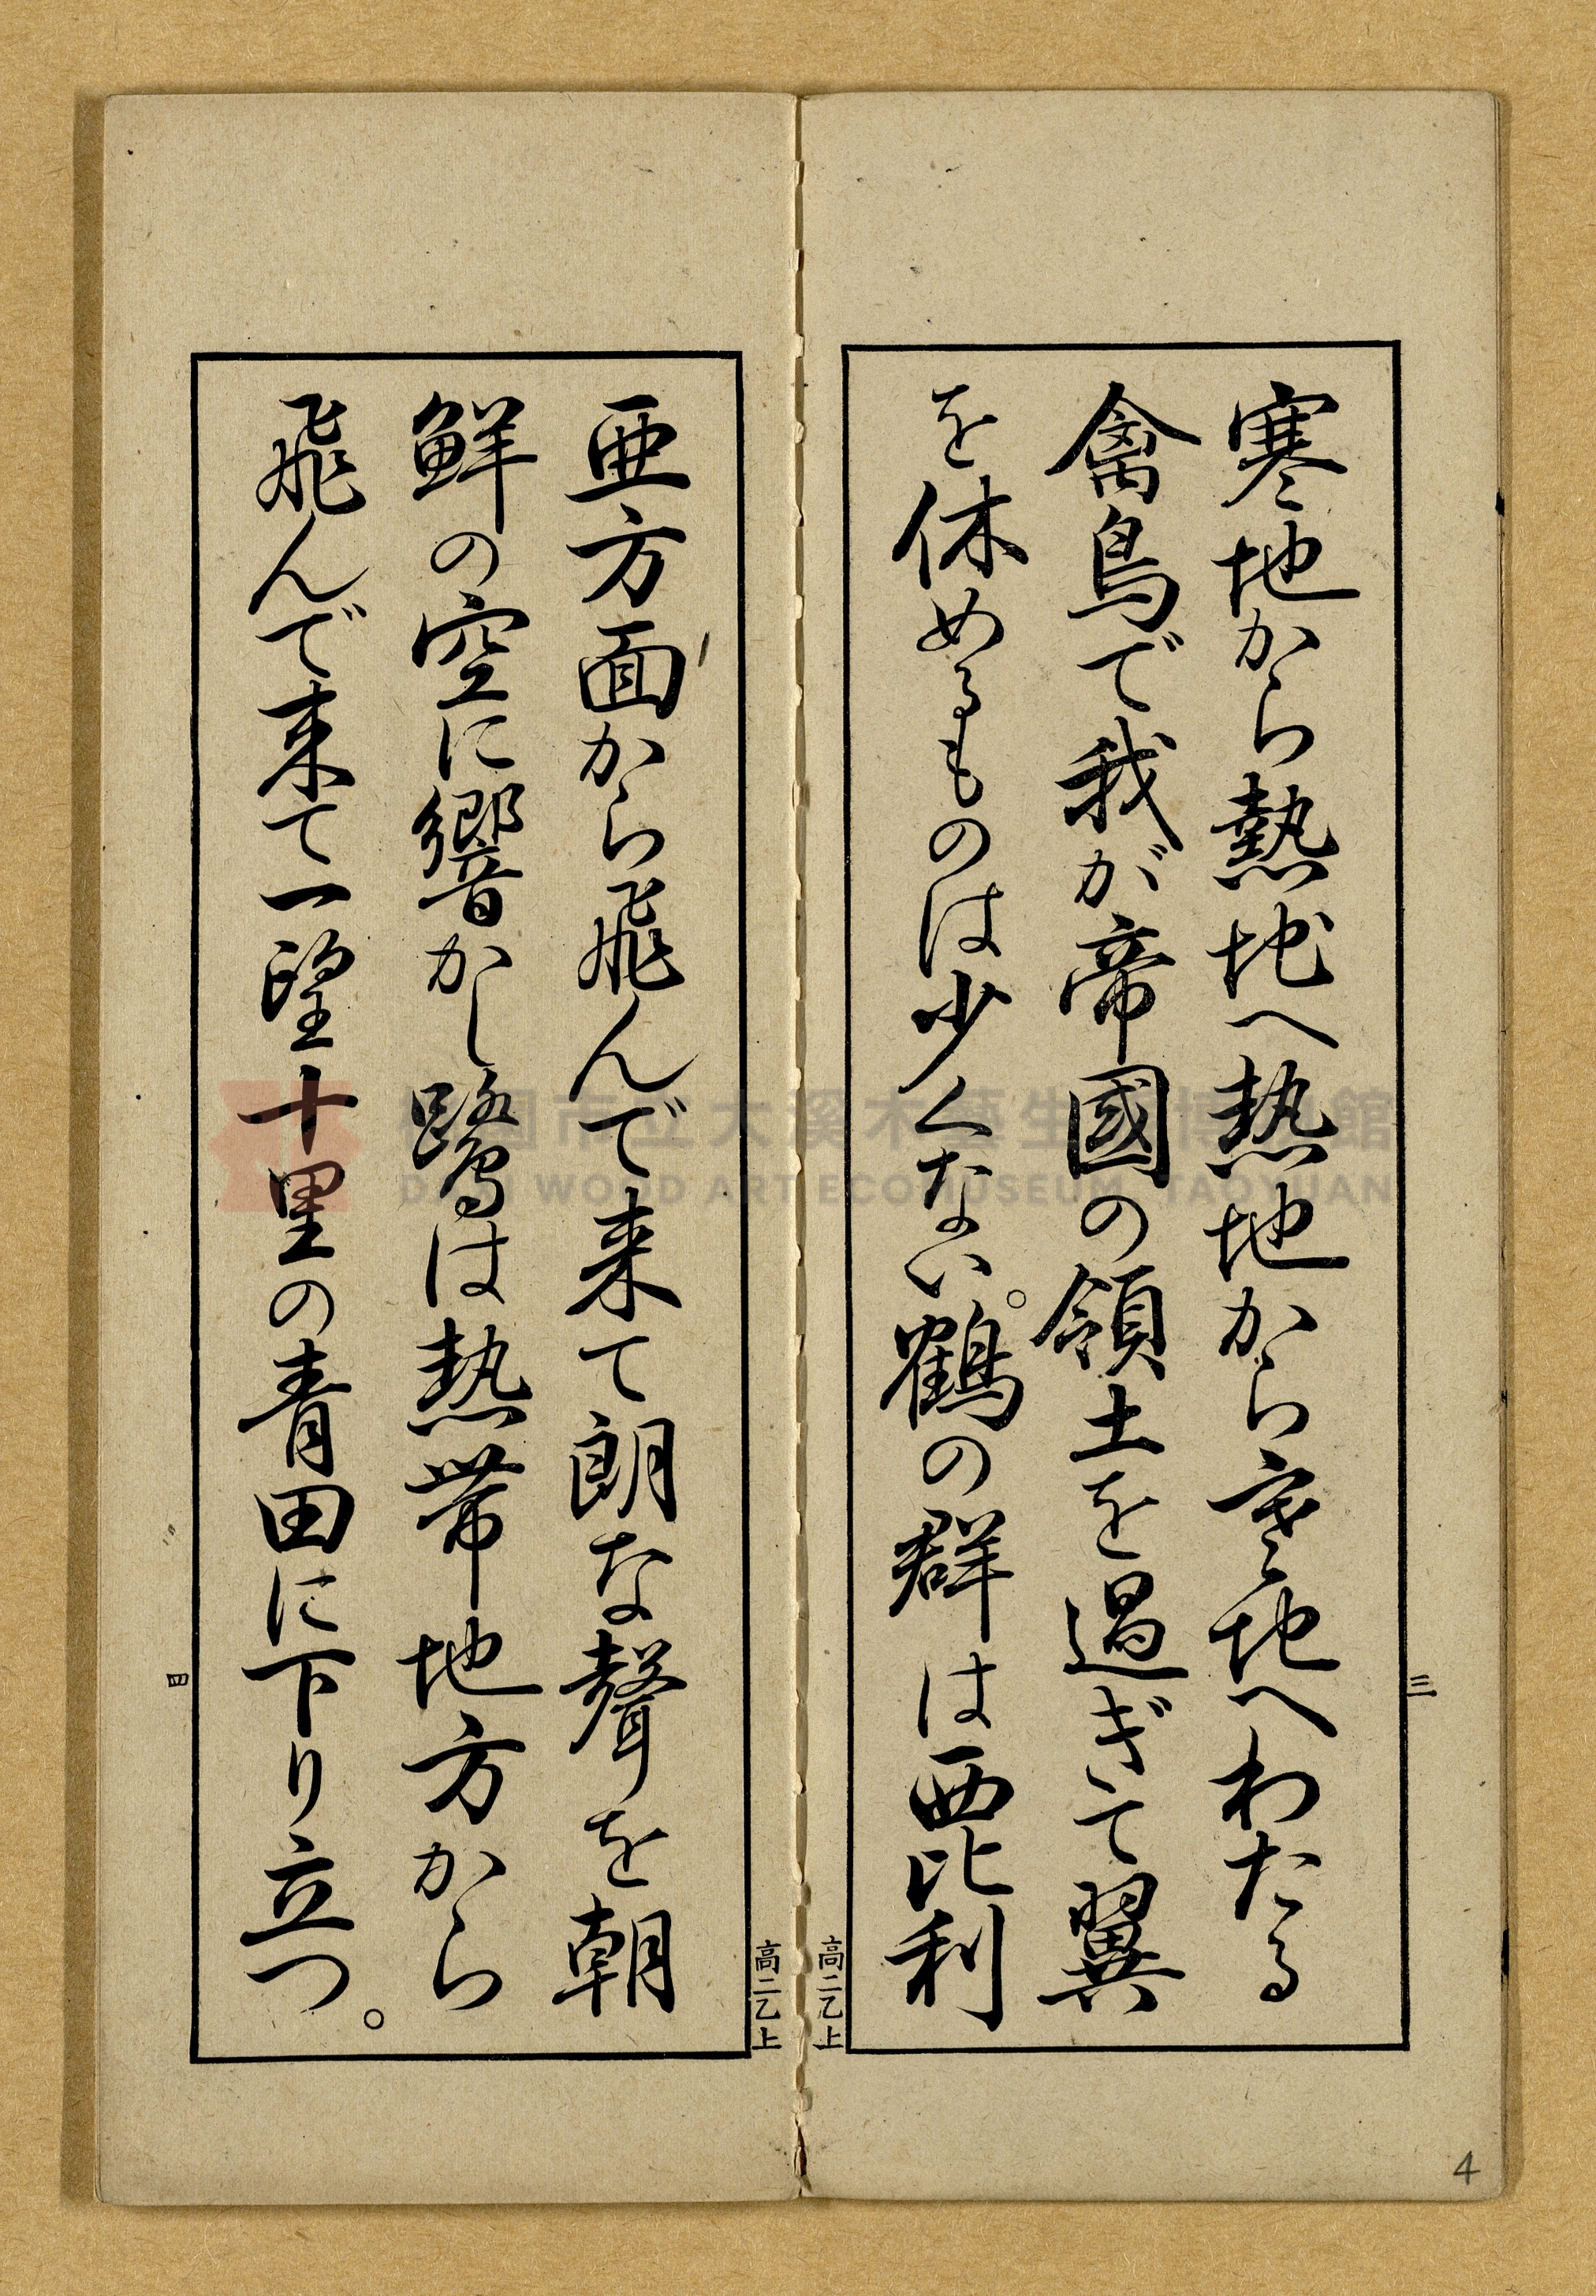 寒地から熱地へ熱地から寒地へわたる
禽鳥で我が帝國の領土を過ぎて翼
を休めるものは少くない。鶴の群は西比利
三
高二乙上
亜方面から飛んで来て朗な聲を朝
鮮の空に響かし鷺は熱帯地方から
飛んで来て一望十里の青田に下り立つ。
高二乙上
四
4
桃園市立大溪木藝生態博物館
DAXI WOOD ART ECOMUSEUM, TAOYUAN